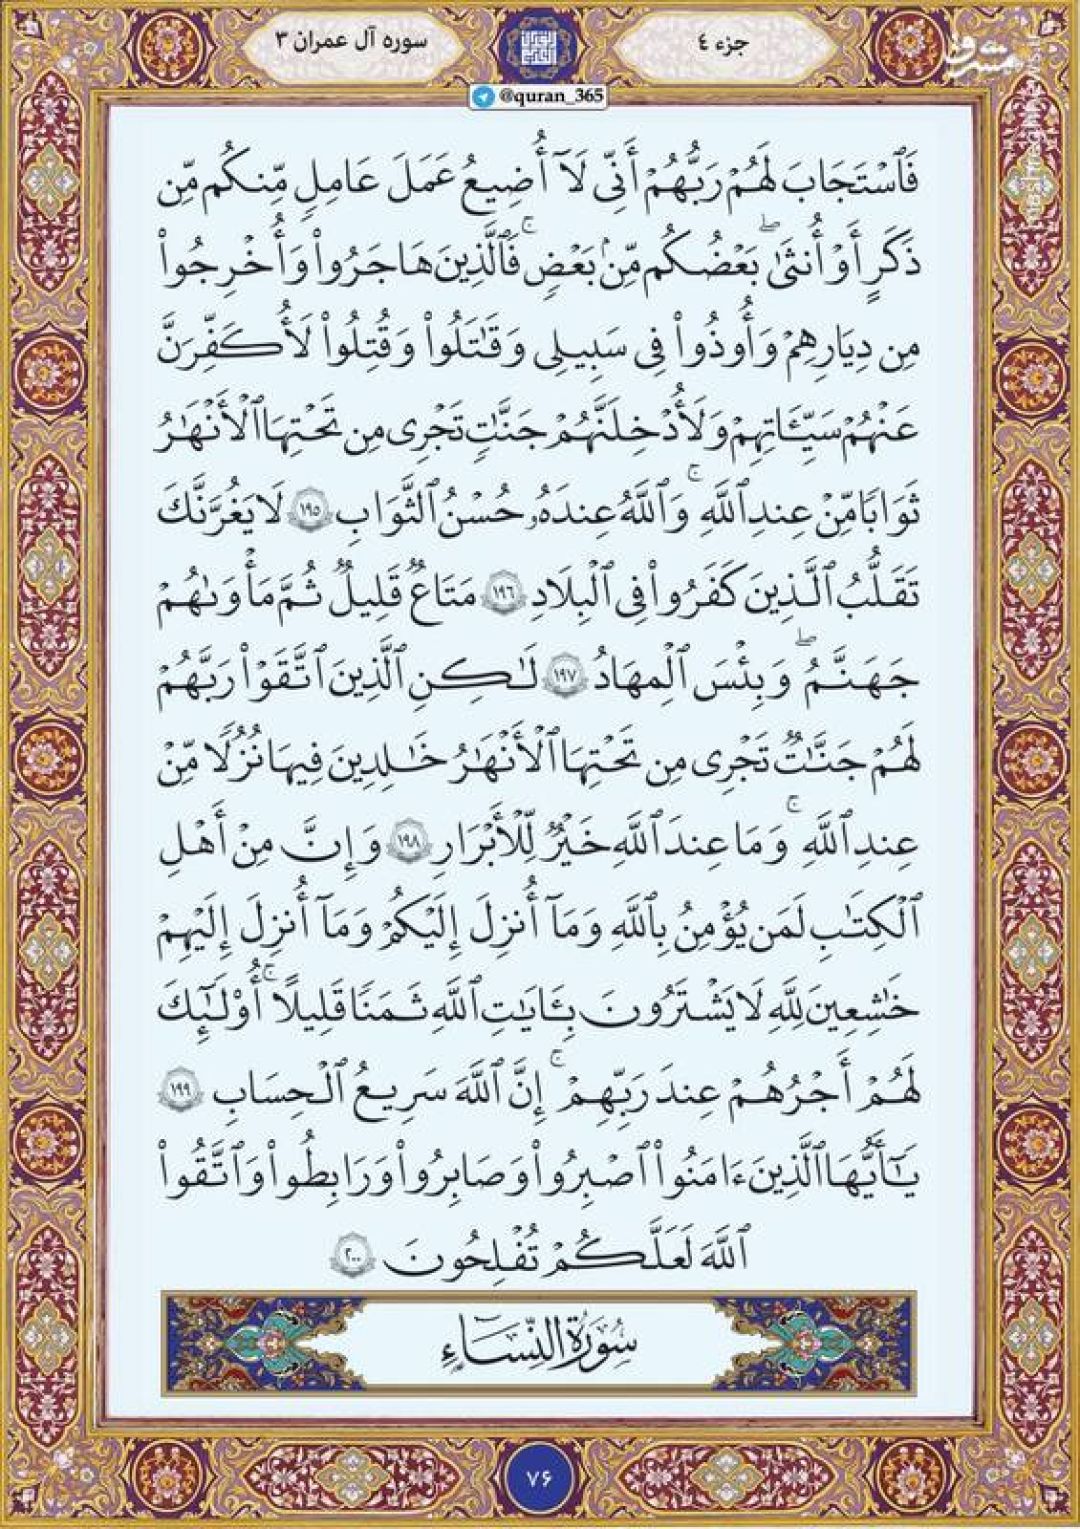 جزء ٤
سوره آل عمران ٣
@quran_365
مشرق
mashreghnews
فَٱسْتَجَابَ لَهُمْ رَبُّهُمْ أَنِّى لَآ أُضِيعُ عَمَلَ عَامِلٍ مِّنكُم مِّن
ذَكَرٍ أَوْ أُنثَىٰ ۖ بَعْضُكُم مِّنۢ بَعْضٍ ۚ فَٱلَّذِينَ هَاجَرُوا۟ وَأُخْرِجُوا۟
مِن دِيَارِهِمْ وَأُوذُوا۟ فِى سَبِيلِى وَقَـٰتَلُوا۟ وَقُتِلُوا۟ لَأُكَفِّرَنَّ
عَنْهُمْ سَيِّـَٔاتِهِمْ وَلَأُدْخِلَنَّهُمْ جَنَّـٰتٍ تَجْرِى مِن تَحْتِهَا ٱلْأَنْهَـٰرُ
ثَوَابًا مِّنْ عِندِ ٱللَّهِ ۚ وَٱللَّهُ عِندَهُۥ حُسْنُ ٱلثَّوَابِ ١٩٥ لَا يَغُرَّنَّكَ
تَقَلُّبُ ٱلَّذِينَ كَفَرُوا۟ فِى ٱلْبِلَادِ ١٩٦ مَتَاعٌ قَلِيلٌ ثُمَّ مَأْوَىٰهُمْ
جَهَنَّمُ ۖ وَبِئْسَ ٱلْمِهَادُ ١٩٧ لَـٰكِنِ ٱلَّذِينَ ٱتَّقَوْا۟ رَبَّهُمْ
لَهُمْ جَنَّـٰتٌ تَجْرِى مِن تَحْتِهَا ٱلْأَنْهَـٰرُ خَـٰلِدِينَ فِيهَا نُزُلًا مِّنْ
عِندِ ٱللَّهِ ۗ وَمَا عِندَ ٱللَّهِ خَيْرٌ لِّلْأَبْرَارِ ١٩٨ وَإِنَّ مِنْ أَهْلِ
ٱلْكِتَـٰبِ لَمَن يُؤْمِنُ بِٱللَّهِ وَمَآ أُنزِلَ إِلَيْكُمْ وَمَآ أُنزِلَ إِلَيْهِمْ
خَـٰشِعِينَ لِلَّهِ لَا يَشْتَرُونَ بِـَٔايَـٰتِ ٱللَّهِ ثَمَنًا قَلِيلًا ۚ أُو۟لَـٰٓئِكَ
لَهُمْ أَجْرُهُمْ عِندَ رَبِّهِمْ ۗ إِنَّ ٱللَّهَ سَرِيعُ ٱلْحِسَابِ ١٩٩
يَـٰٓأَيُّهَا ٱلَّذِينَ ءَامَنُوا۟ ٱصْبِرُوا۟ وَصَابِرُوا۟ وَرَابِطُوا۟ وَٱتَّقُوا۟
ٱللَّهَ لَعَلَّكُمْ تُفْلِحُونَ ٢٠٠
سُورَةُ النِّسَاءِ
٧۶